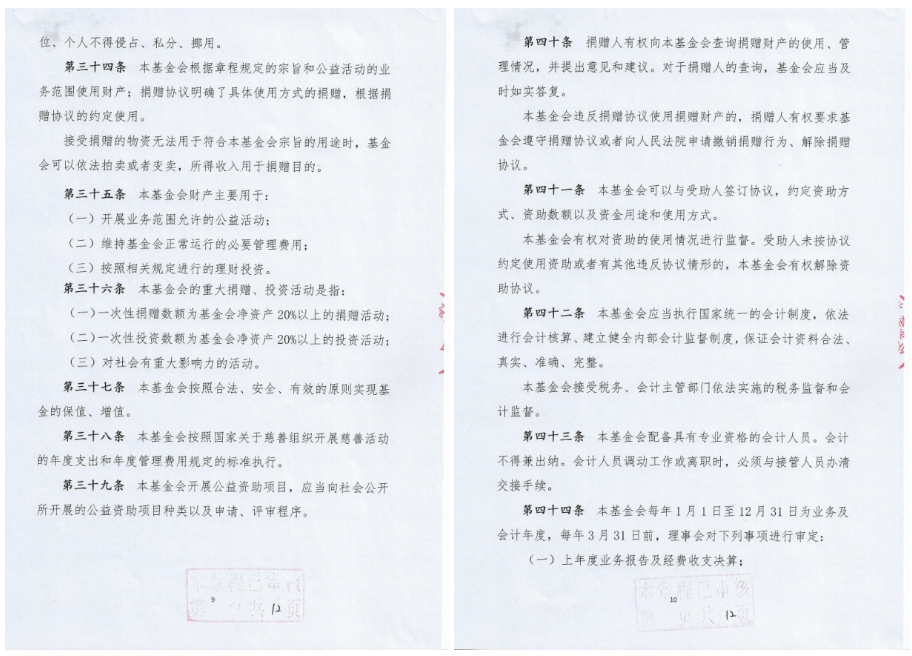 位、个人不得侵占、私分、挪用。
第三十四条 本基金会根据章程规定的宗旨和公益活动的业
务范围使用财产；捐赠协议明确了具体使用方式的捐赠，根据捐
赠协议的约定使用。
接受捐赠的物资无法用于符合本基金会宗旨的用途时，基金
会可以依法拍卖或者变卖，所得收入用于捐赠目的。
第三十五条 本基金会财产主要用于：
（一）开展业务范围允许的公益活动；
（二）维持基金会正常运行的必要管理费用；
（三）按照相关规定进行的理财投资。
第三十六条 本基金会的重大捐赠、投资活动是指：
（一）一次性捐赠数额为基金会净资产 20%以上的捐赠活动；
（二）一次性投资数额为基金会净资产 20%以上的投资活动；
（三）对社会有重大影响力的活动。
第三十七条 本基金会按照合法、安全、有效的原则实现基
金的保值、增值。
第三十八条 本基金会按照国家关于慈善组织开展慈善活动
的年度支出和年度管理费用规定的标准执行。
第三十九条 本基金会开展公益资助项目，应当向社会公开
所开展的公益资助项目种类以及申请、评审程序。
本章程已审核
9
第 页共12页
第四十条 捐赠人有权向本基金会查询捐赠财产的使用、管
理情况，并提出意见和建议。对于捐赠人的查询，基金会应当及
时如实答复。
本基金会违反捐赠协议使用捐赠财产的，捐赠人有权要求基
金会遵守捐赠协议或者向人民法院申请撤销捐赠行为、解除捐赠
协议。
第四十一条 本基金会可以与受助人签订协议，约定资助方
式、资助数额以及资金用途和使用方式。
本基金会有权对资助的使用情况进行监督。受助人未按协议
约定使用资助或者有其他违反协议情形的，本基金会有权解除资
助协议。
第四十二条 本基金会应当执行国家统一的会计制度，依法
进行会计核算、建立健全内部会计监督制度，保证会计资料合法、
真实、准确、完整。
本基金会接受税务、会计主管部门依法实施的税务监督和会
计监督。
第四十三条 本基金会配备具有专业资格的会计人员。会计
不得兼出纳。会计人员调动工作或离职时，必须与接管人员办清
交接手续。
第四十四条 本基金会每年 1 月 1 日至 12 月 31 日为业务及
会计年度，每年 3 月 31 日前，理事会对下列事项进行审定：
（一）上年度业务报告及经费收支决算；
本章程已审核
10
第 页共12页